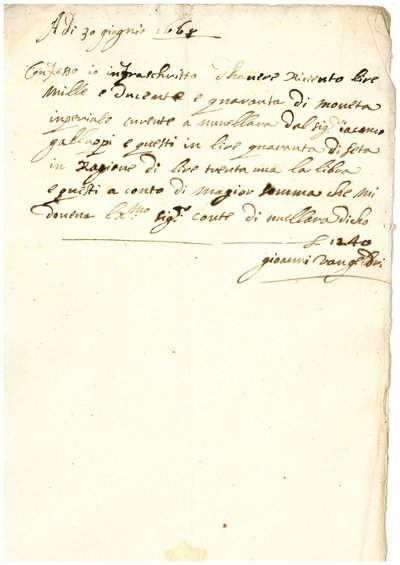 Adi 30 giugnio 1668
Confesso io infraschritto d'havere Riciento lire
Mille e Ducente e quaranta di moneta
inperiale curente a nuuellara dal sig. Jiacomo
galluppi e questi in lire quaranta di seta
in Ragione di lire trenta una la libra
e questi a conto di magior somma che mi
doueua l'Ex.mo sig.r conte di nuellara dicho
£ 1240
gioanni